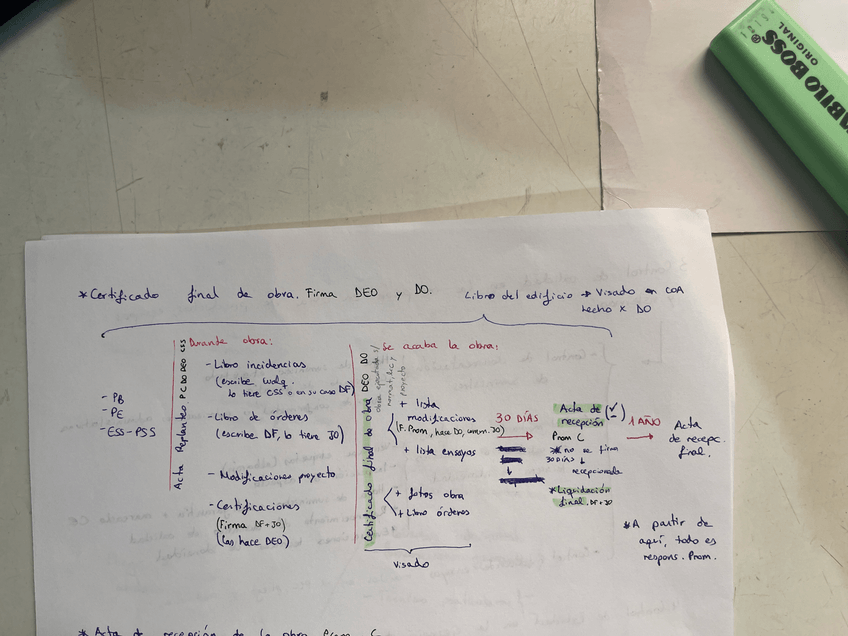 STABILO BOSS
ORIGINAL
* Certificado final de obra. Firma DEO y DO.
Libro del edificio → Visado en COA
hecho x DO
- PB
- PE
- ESS-PSS
Acta Replanteo P C DO DEO CSS
Durante obra:
- Libro incidencias
(escribe
lo tiene CSS o en su caso DF)
- Libro de órdenes
(escribe DF, lo tiene JO)
- Modificaciones proyecto
- Certificaciones
(Firma DF+JO)
(las hace DEO)
Certificado final de obra DEO DO
obra ejecutada s/
proyecto
Se acaba la obra:
+ lista
modificaciones
(F. Prom, hace DO, JO)
+ lista ensayos
+ fotos obra
+ Libro órdenes
Visado
30 DÍAS
Acta de (✓)
recepción
Prom C
* no se firma
30 DÍAS ↓
recepcionada
* Liquidación
final. DF+JO
1 AÑO
Acta
de recepc.
final.
* A partir de
aquí, todo es
respons. Prom.
* Acta de recepción de la obra Prom C